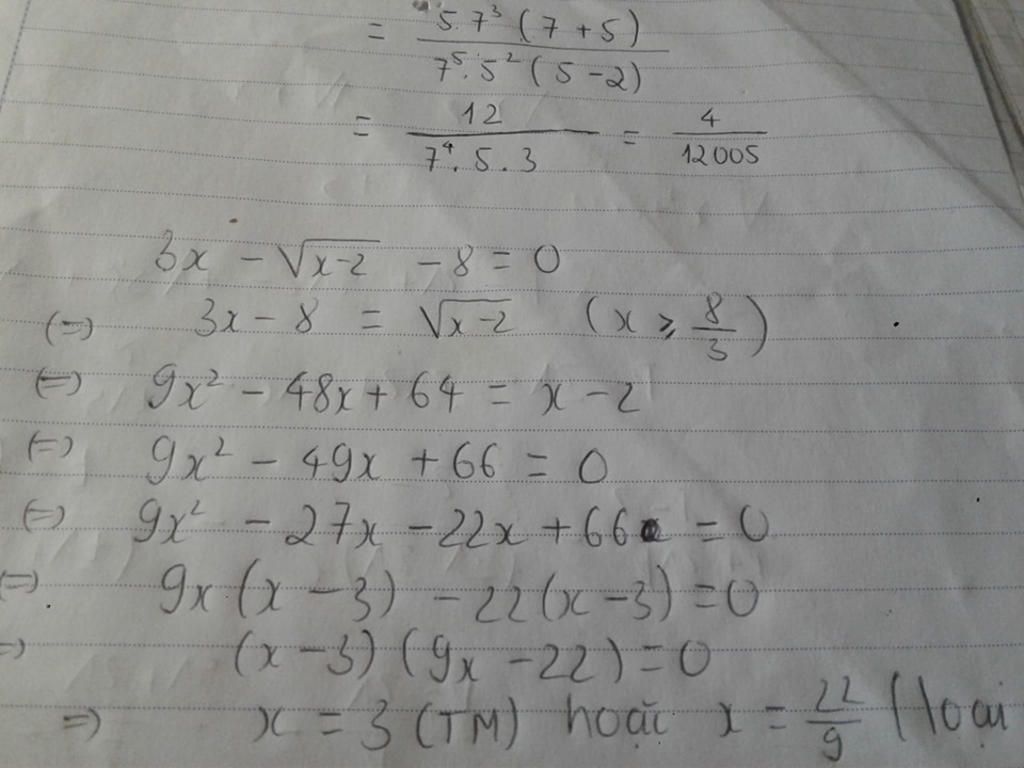 = 5.7³(7+5) / 7⁵.5²(5-2)
= 12 / 7⁴.5.3 = 4 / 12005
3x - √(x-2) - 8 = 0
(=) 3x - 8 = √(x-2) (x ≥ 8/3)
(=) 9x² - 48x + 64 = x - 2
(=) 9x² - 49x + 66 = 0
(=) 9x² - 27x - 22x + 66 = 0
(=) 9x(x-3) - 22(x-3) = 0
=) (x-3)(9x-22) = 0
=) x = 3 (TM) hoặc x = 22/9 (loại